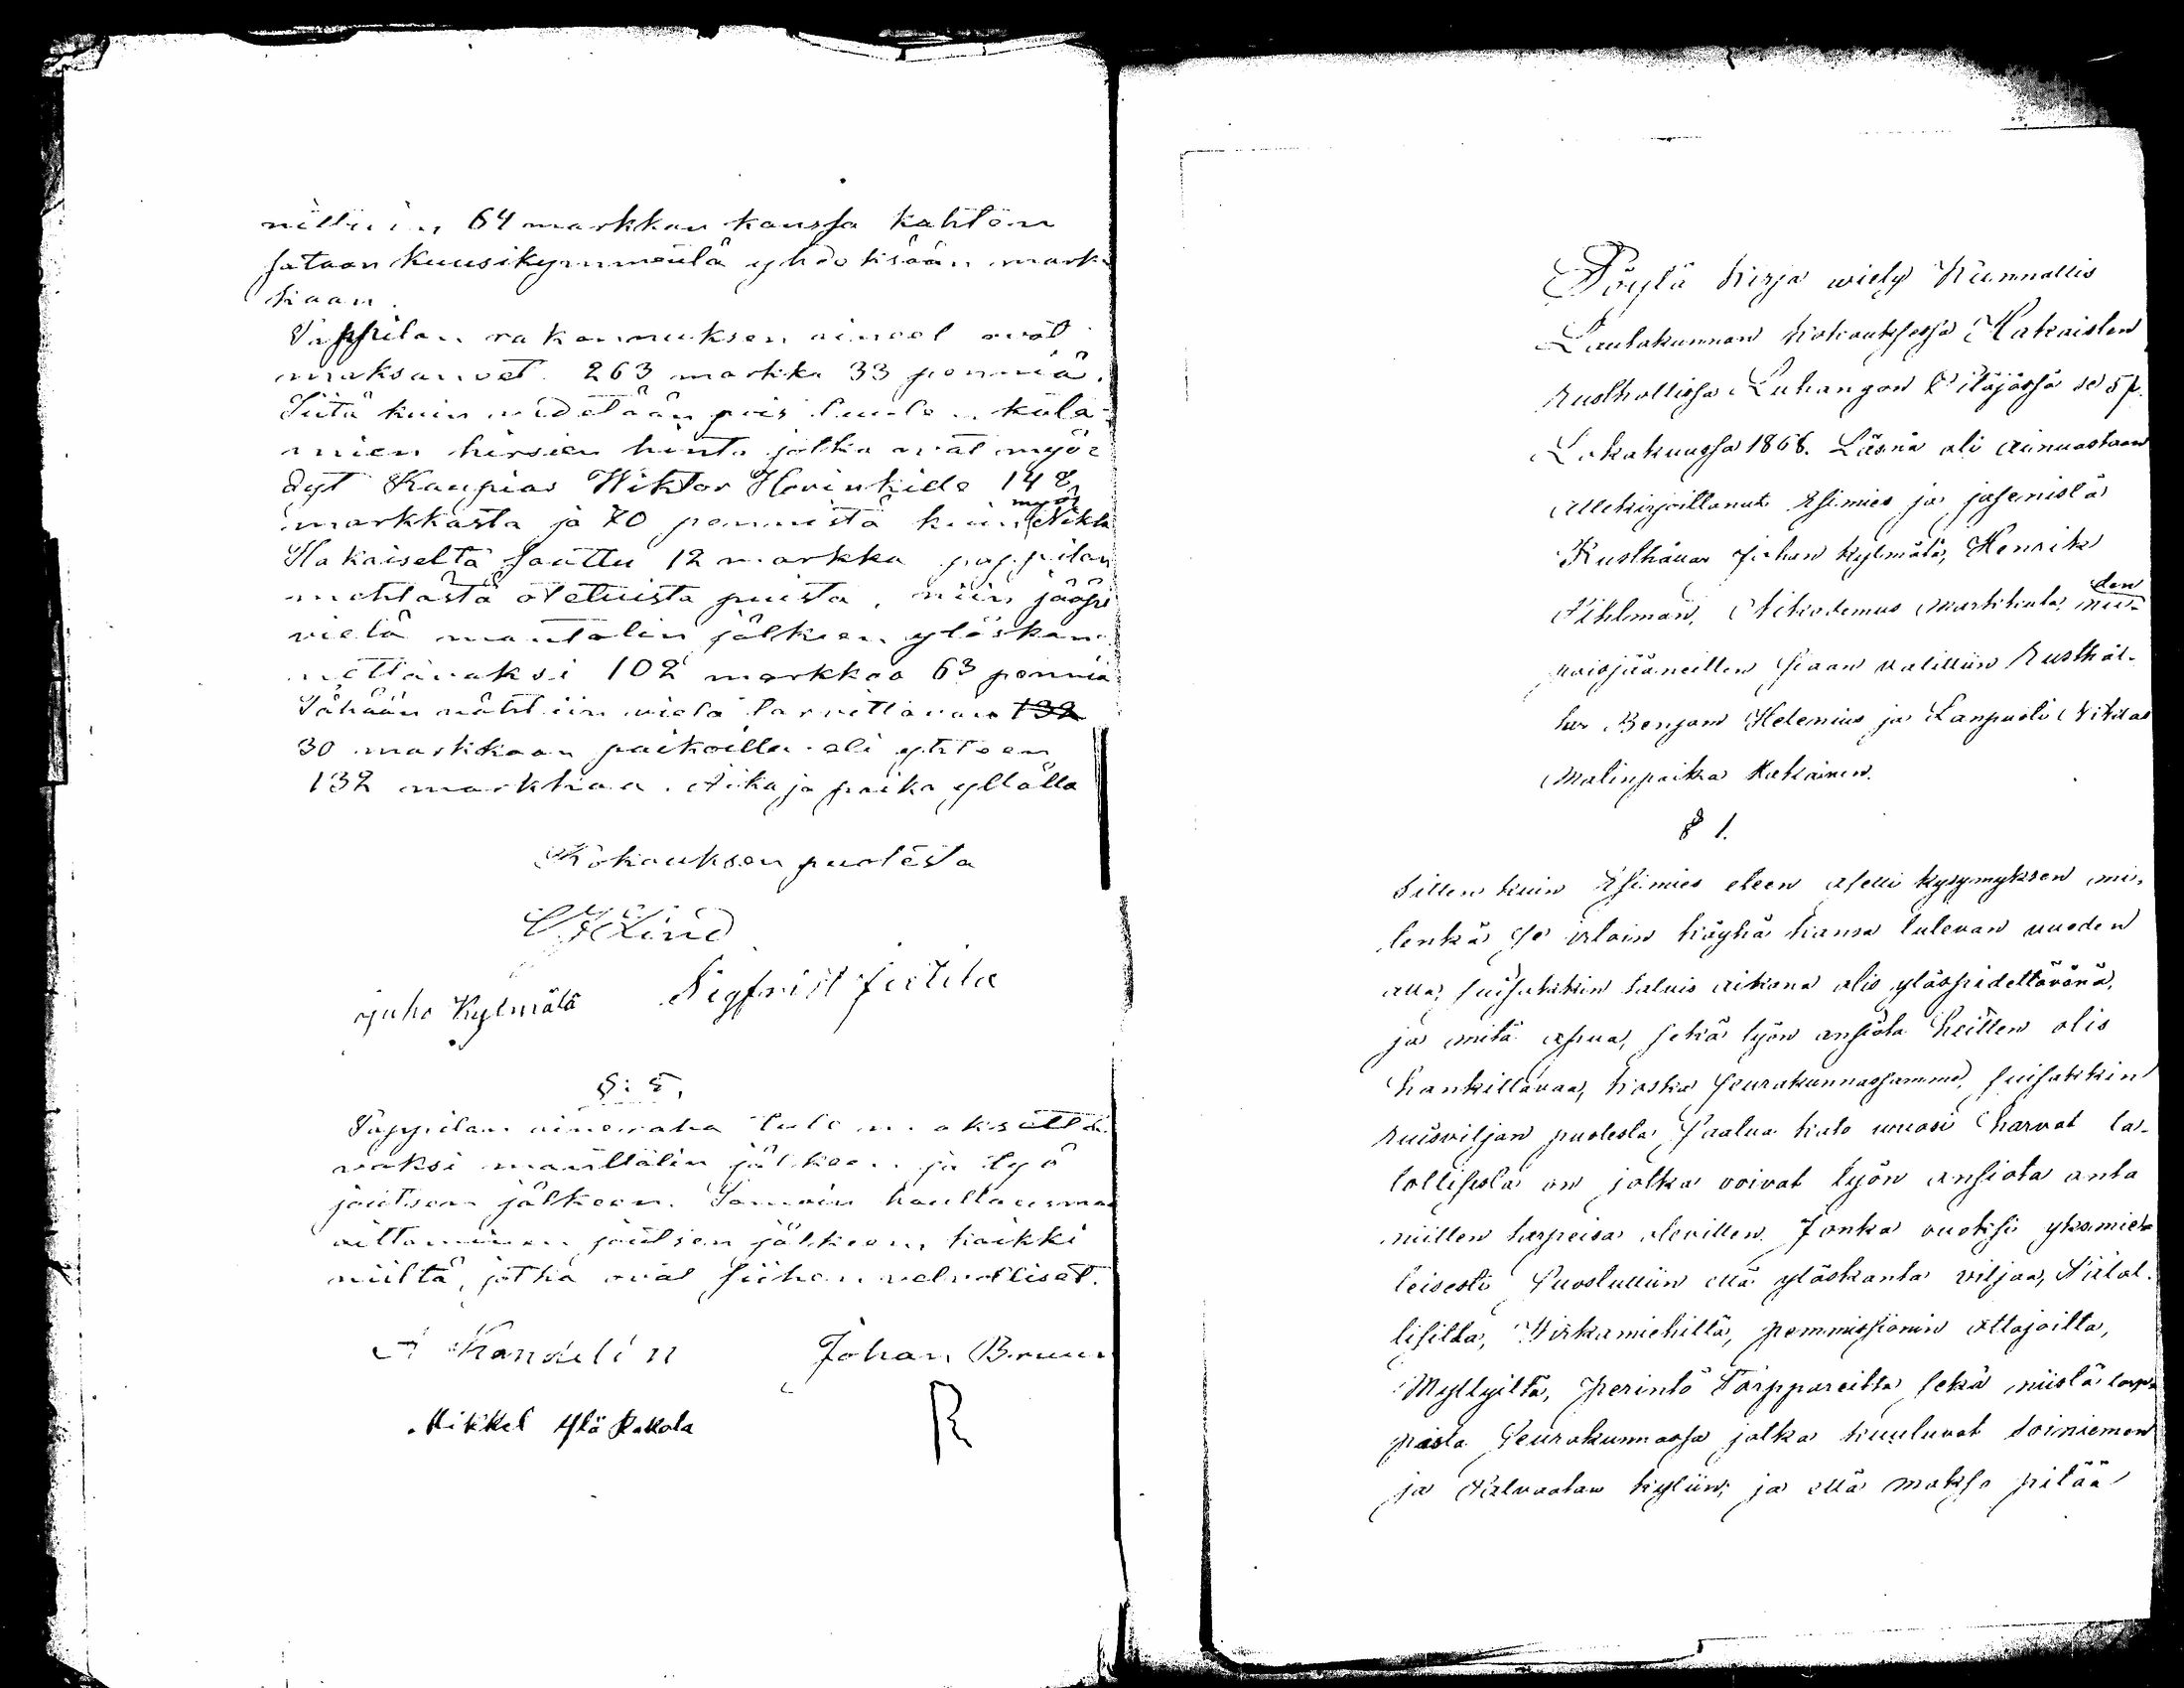 64 markkan kanssa kahteen
sataan kuusikymmentä yhdeksään mark-
kaan.
Pappilan rakennuksen aineet ovat
maksanvet 263 markka 33 penniä.
Siitä kuin vedetään pois tuule. kala-
mien hirsien hinta jotka ovat myö-
dyt Kaupias Wiktor Hovinkide 148
markkasta ja 70 pennistä kuin myös Nikla
Hakaiselta saattu 12 markka pappilan
mehtästä otetuista puista, niin jääpi
vielä mantalin jälkeen ylöskan-
nettävaksi 102 markkaa 63 penniä
Tähään nähtiin vielä tarvittavan 132
30 markkaan paikoilla eli yhteen
132 markkaa. Aika ja paika yllällä
Kokouksen puolesta
Lind
Juho Kylmälä Sigfrist
§: 5.
Pappilan aineraha tule maksetta-
vaksi manttalin jälkeen ja työ
joutsen jälkeen. Samoin hautausmaa
aittaminen joutsen jälkeen, kaikki
niiltä, jotka ovat siihen velvolliset.
A Kandelin Johan Bruun
Mikkel Ylä Rakkola R
Pöytä kirja wiety Kunnallis
Lautakunnan kokouksessa Hakaisten
Rusthollissa Luhangon Pitäjässä se 5 p.
Lokakuussa 1868. Läsnä oli ainuastaan
allekirjoittanut Esimies ja jäsenistä
Rusthäuar Johan Kylmälä, Henrik
Pihlman, Nikodemus Markkula, nii-
den
poisjääneitten siaan valittiin Rusthäl-
lar Benjam Helenius ja Lanpuoti Niklas
Malinpaika Kakainen.
§ 1.
Sitten kuin Esimies eteen aseti kysymyksen mi-
lenkä se irtoin köyhä kansa tulevan vuoden
alla, suisakkin talvis aikana olis ylöspidettävänä,
ja mitä apua, sekä työn ansiota heitten olis
hankittavaa, koska seurakunnassamme, suisakkin
ruisviljan puolesta saatua kato vuosi harvat ta-
lollisista on jotka voivat työn ansiota anta
niitten tarpeisa olevitten. Jonka vuoksi yksimie-
leisesti suostuttiin että ylöskanta viljaa, Talol-
lisilta, Virkamiehiltä, pemmissionin ottajoilta,
Myllyiltä, perintö Torppareilta sekä niistä torp-
pista seurakunnassa jotka kuuluvat Soiniemen
ja kyliin; ja että maksa pitää